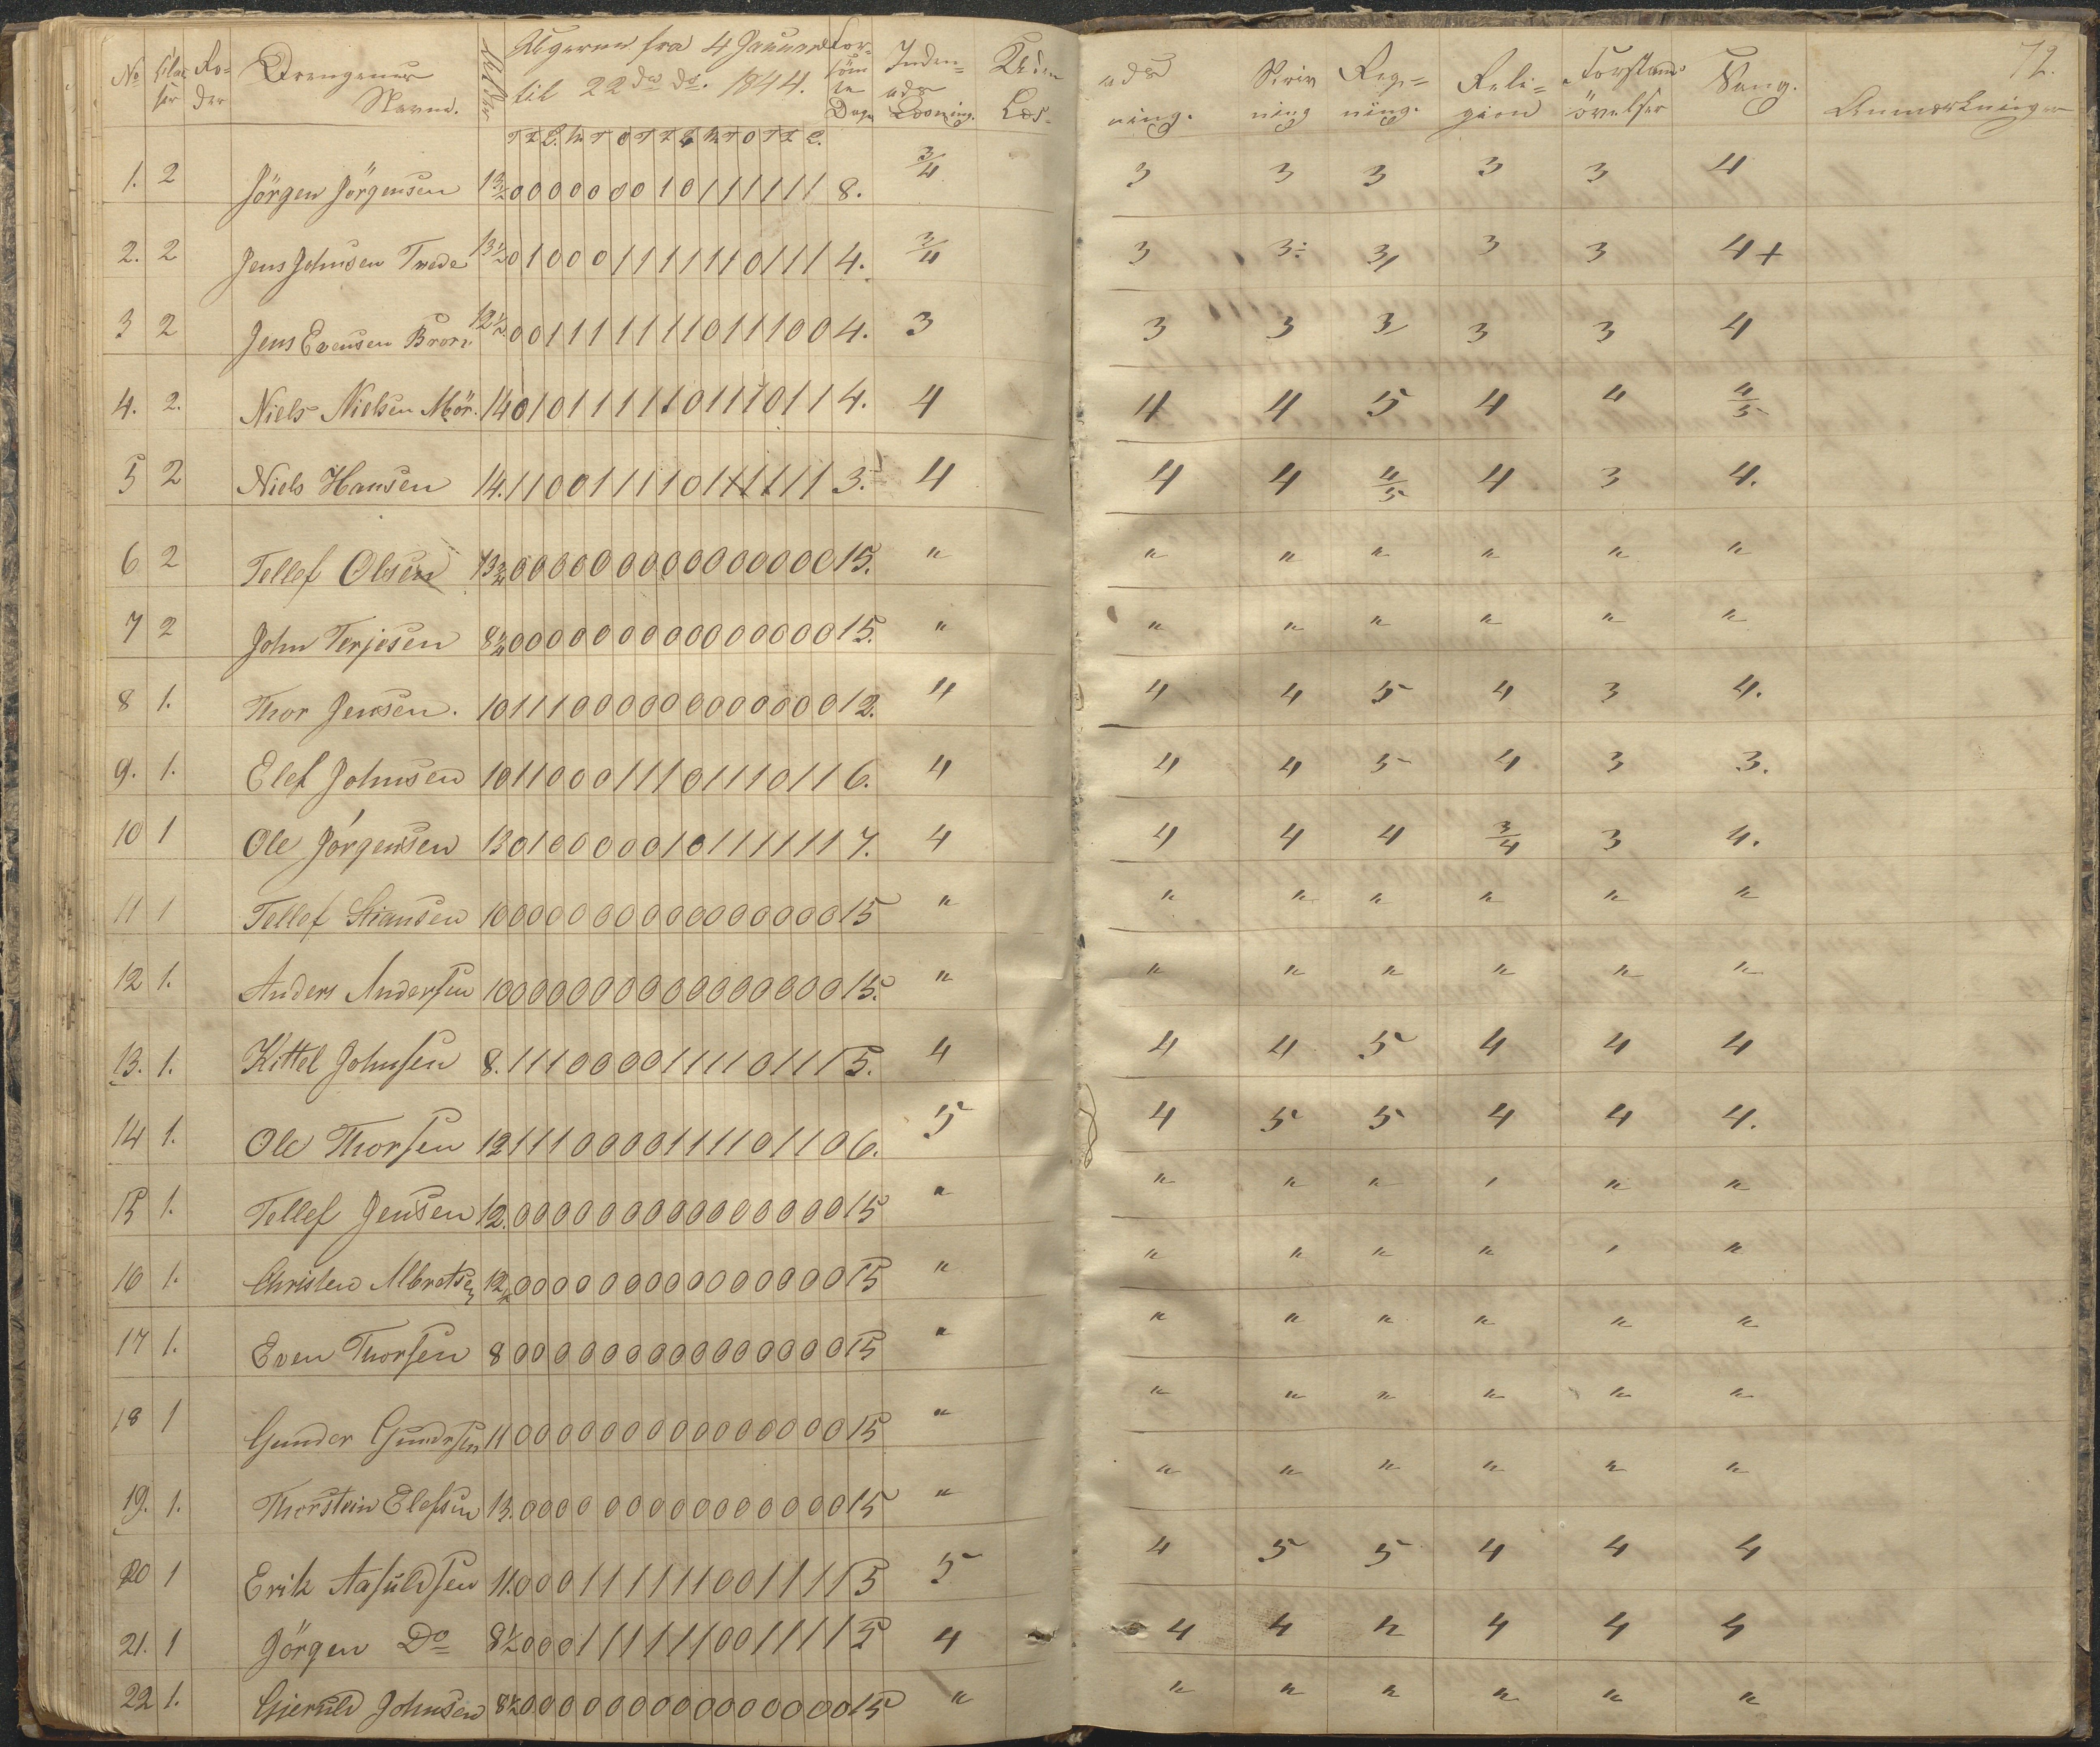 No Clas ser Ro- der Drengenes Navne. Alder Ugerne fra 4 Januar til 22de ds. 1844. For- söm te Dage Inden- ads Læsning. Uden Læs-
ads ning. Skriv ning Reg- ning. Reli- gion Forstands övelser Sang. Anmærkninger
72.
1. 2 Jörgen Jörgensen 13½ 0 0 0 0 0 0 0 1 0 1 1 1 1 1 1 8. 3/4 3 3 3 3 3 4
2. 2 Jens Johnsen Trede 13½ 0 1 0 0 0 1 1 1 1 1 1 0 1 1 1 4. 3/4 3 3÷ 3/ 3 3 4+
3 2 Jens Evensen 12½ 0 0 1 1 1 1 1 1 1 0 1 1 1 0 0 4. 3 3 3 3/ 3 3 4
4. 2. Niels Nielsen Mör. 14 0 1 0 1 1 1 1 1 0 1 1 1 0 1 1 4. 4 4 4 5 4 4 4/5
5 2 Niels Hansen 14. 1 1 0 0 1 1 1 1 0 1 1 1 1 1 1 3. 4 4 4 4/5 4 3 4.
6 2 Tellef Olsen 13¾ 0 0 0 0 0 0 0 0 0 0 0 0 0 0 0 15. " " " " " " "
7 2 John Terjesen 8¼ 0 0 0 0 0 0 0 0 0 0 0 0 0 0 0 15. " " " " " " "
8 1. Thor Jensen. 10 1 1 1 0 0 0 0 0 0 0 0 0 0 0 0 12. 4 4 4 5 4 3 4.
9. 1. Elef Johnsen 10 1 1 0 0 0 1 1 1 0 1 1 1 0 1 1 6. 4 4 4 5 4 3 3.
10 1 Ole Jörgensen 13 0 1 0 0 0 0 0 1 0 1 1 1 1 1 1 7. 4 4 4 4 3/4 3 4.
11 1 Tellef Stiansen 10 0 0 0 0 0 0 0 0 0 0 0 0 0 0 0 15 " " " " " " "
12 1. Anders Andersen 10 0 0 0 0 0 0 0 0 0 0 0 0 0 0 0 15. " " " " " " "
13. 1. Kittel Johnsen 8. 1 1 1 0 0 0 0 1 1 1 1 0 1 1 1 5. 4 4 4 5 4 4 4
14 1. Ole Thorsen 12 1 1 1 0 0 0 0 1 1 1 1 0 1 1 0 6. 5 4 5 5 4 4 4.
15 1. Tellef Jensen 12. 0 0 0 0 0 0 0 0 0 0 0 0 0 0 0 15 " " " " " " "
16 1. Christen Albretsen 12½ 0 0 0 0 0 0 0 0 0 0 0 0 0 0 0 15 " " " " " " "
17 1. Even Thorsen 8 0 0 0 0 0 0 0 0 0 0 0 0 0 0 0 15 " " " " " " "
18 1 Gunder Gundersen 11 0 0 0 0 0 0 0 0 0 0 0 0 0 0 0 15 " " " " " " "
19. 1. Thorstein Elefsen 13. 0 0 0 0 0 0 0 0 0 0 0 0 0 0 0 15 " " " " " " "
20 1 Erik Aasuldsen 11. 0 0 0 1 1 1 1 1 1 0 0 1 1 1 1 5 5 4 5 5 4 4 4
21. 1 Jörgen Do 8½ 0 0 0 1 1 1 1 1 1 0 0 1 1 1 1 5 4 4 4 " 4 4 4
22 1. Gieruld Johnsen 8½ 0 0 0 0 0 0 0 0 0 0 0 0 0 0 0 15 " " " " " " "